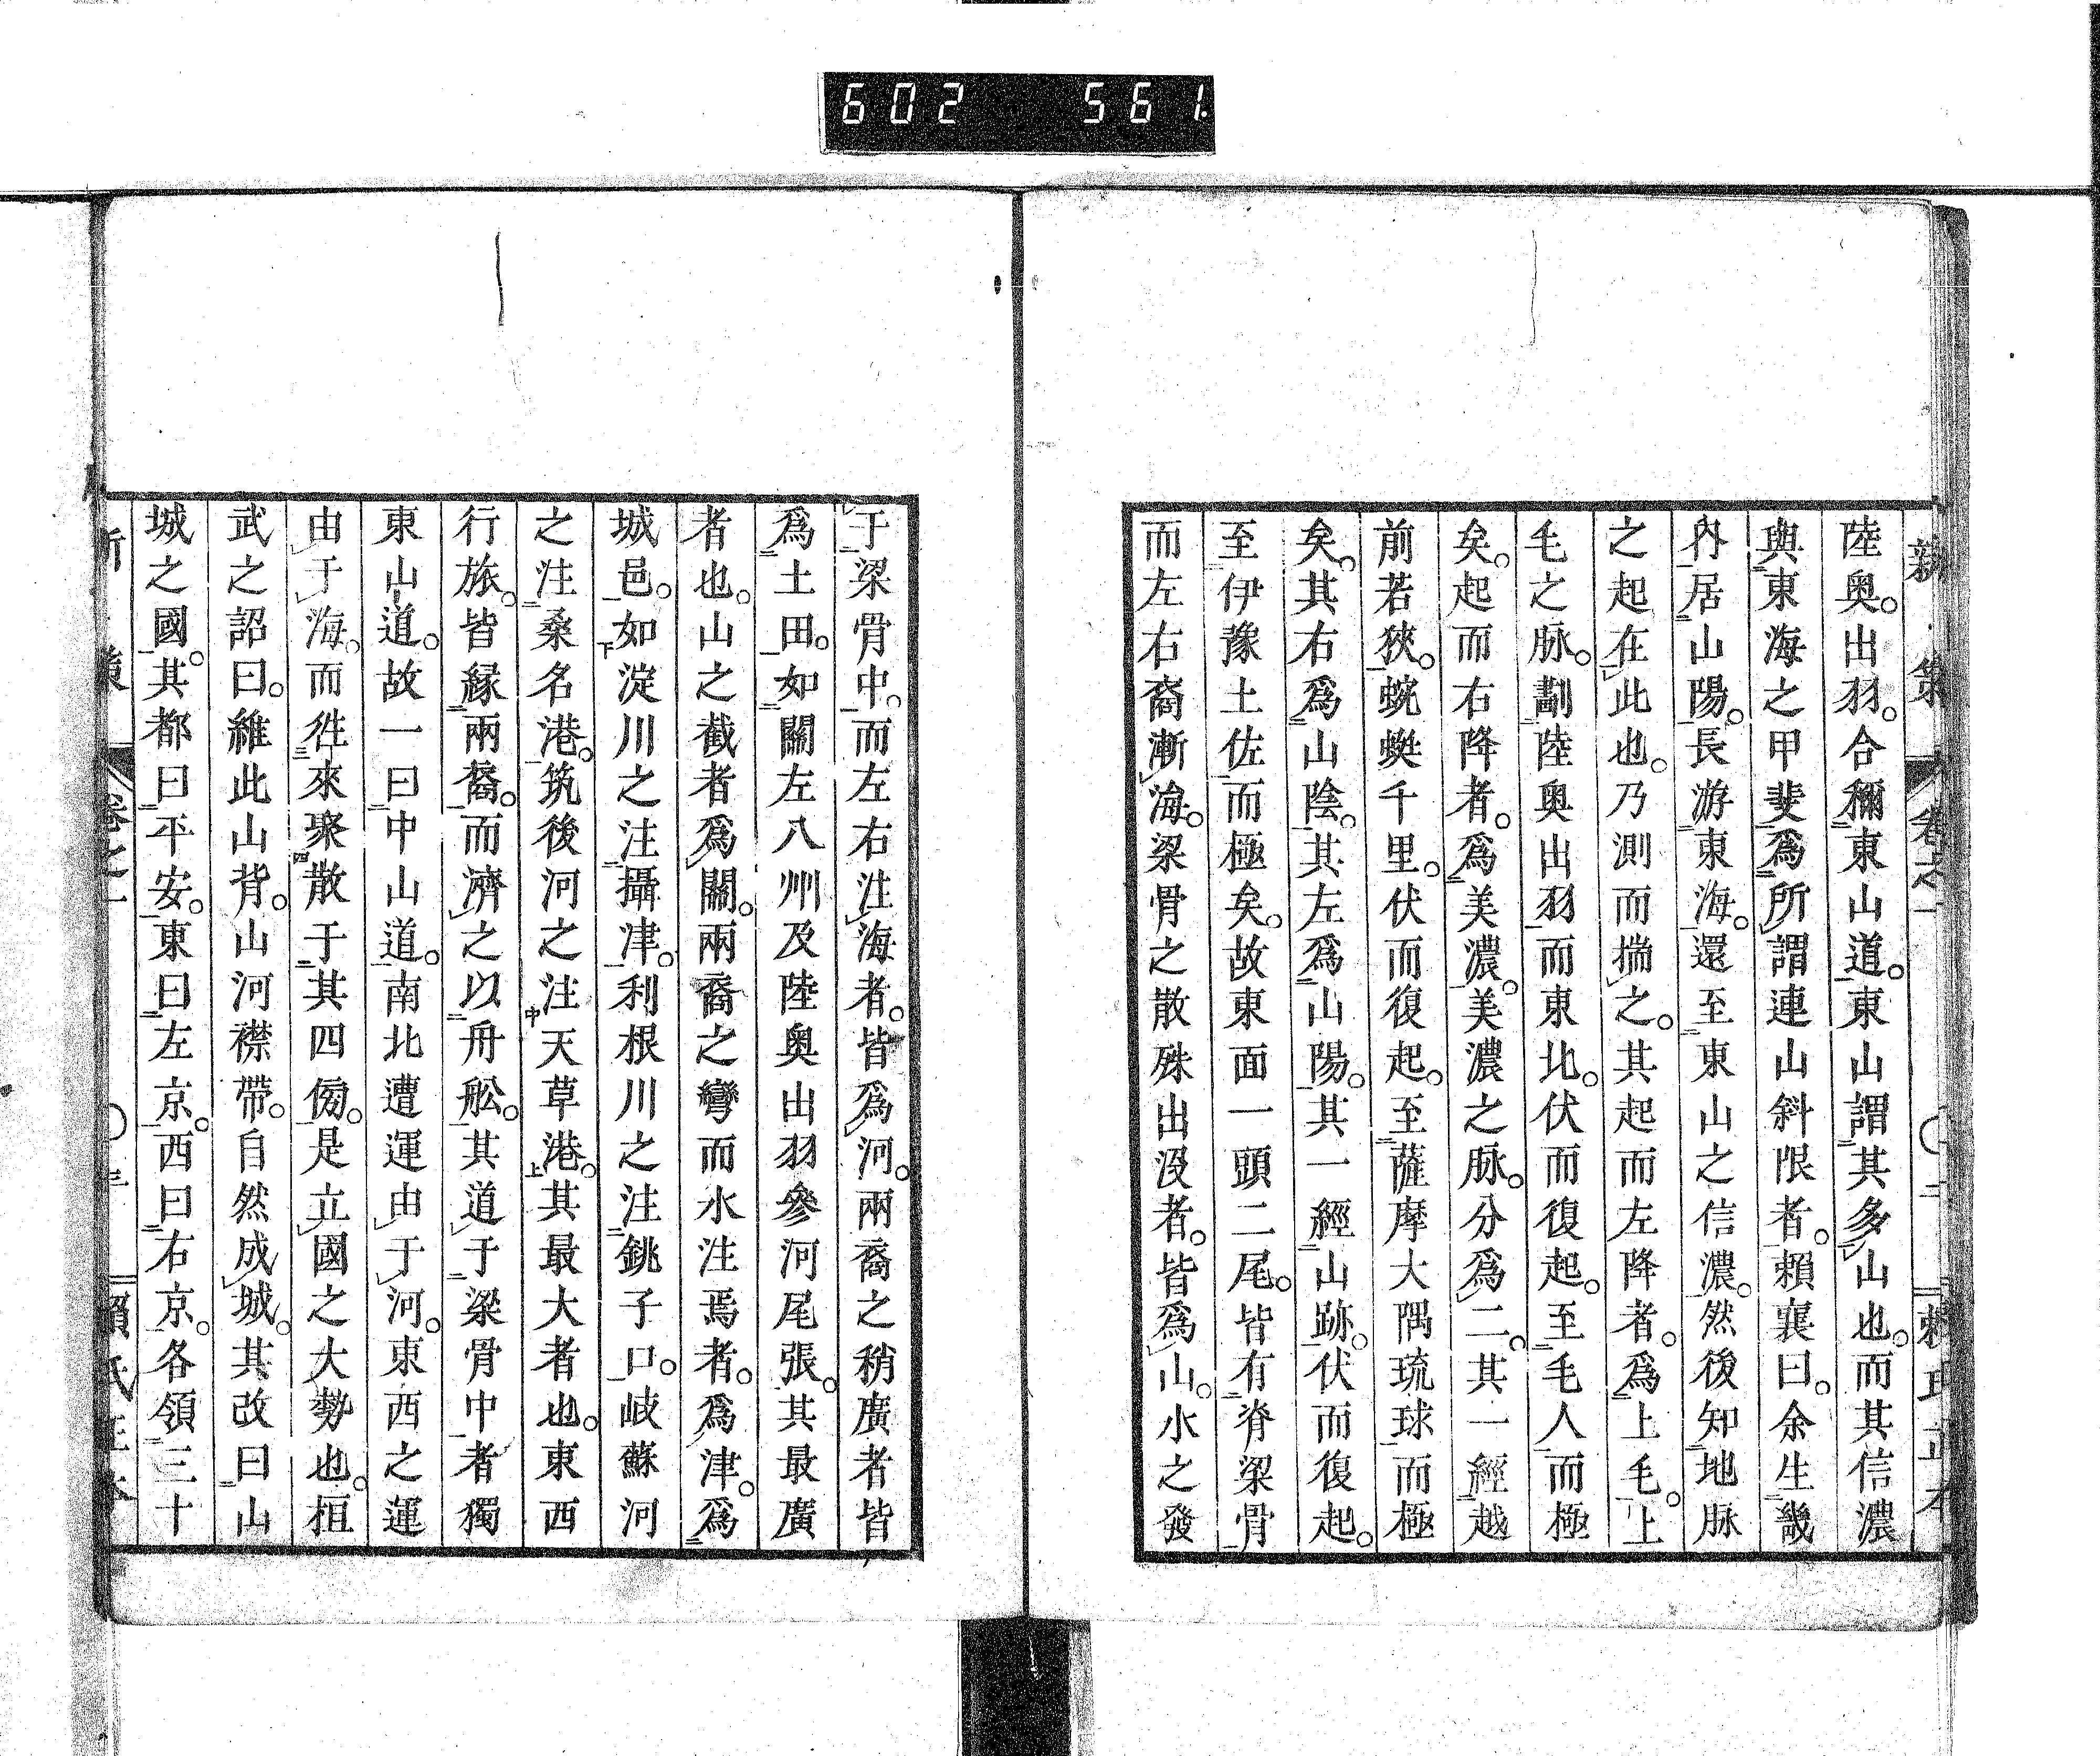 602 561
陸奥。出羽。合稱東山道。東山謂其多山也。而其信濃
與東海之甲斐爲所謂連山斜限者。頼襄曰。余生畿
内居山陽。長游東海。還至東山之信濃。然後知地脉
之起在此也。乃測而揣之。其起而左降者。爲上毛。上
毛之脉。劃陸奥出羽而東北。伏而復起。至毛人而極
矣。起而右降者。爲美濃。美濃之脉。分爲二。其一經越
前若狹。蜿蜒千里。伏而復起。至薩摩大隅琉球而極
矣。其右爲山陰。其左爲山陽。其一經山跡。伏而復起。
至伊豫土佐而極矣。故東面一頭二尾。皆有脊梁骨
而左右裔漸海。梁骨之散殊出沒者。皆爲山。水之發
于梁骨中。而左右注海者。皆爲河。兩裔之稍廣者皆
爲土田。如關左八州及陸奥出羽參河尾張。其最廣
者也。山之截者爲關。兩裔之彎而水注焉者。爲津。爲
城邑。如淀川之注攝津。利根川之注銚子口。岐蘇河
之注桑名港。筑後河之注天草港。其最大者也。東西
行旅。皆縁兩裔。而濟之以舟舩。其道于梁骨中者獨
東山道。故一曰中山道。南北遭運由于河。東西之運
由于海。而徃來聚散于其四傍。是立國之大勢也。桓
武之詔曰。維此山背。山河襟帶。自然成城。其改曰山
城之國。其都曰平安。東曰左京。西曰右京。各領三十